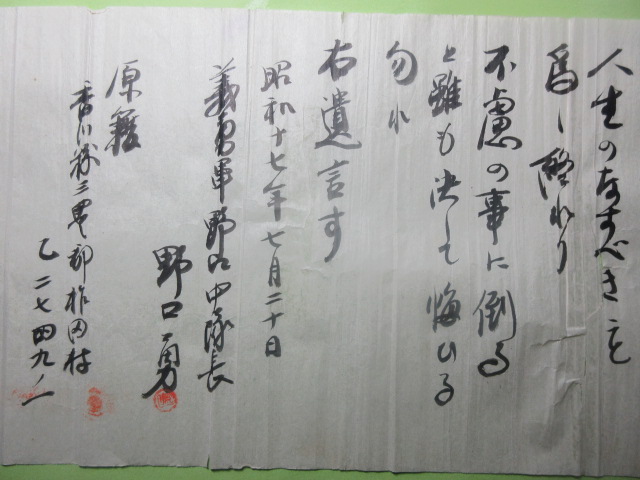 人生のなすべきこと
為し離れり
不慮の事に倒る
と雖も決して悔ひる
勿れ
右遺言す
昭和十七年七月二十日
義勇軍野口中隊長
野口勇
原籍
香川縣三豊郡柞田村
乙二七四九ノ一